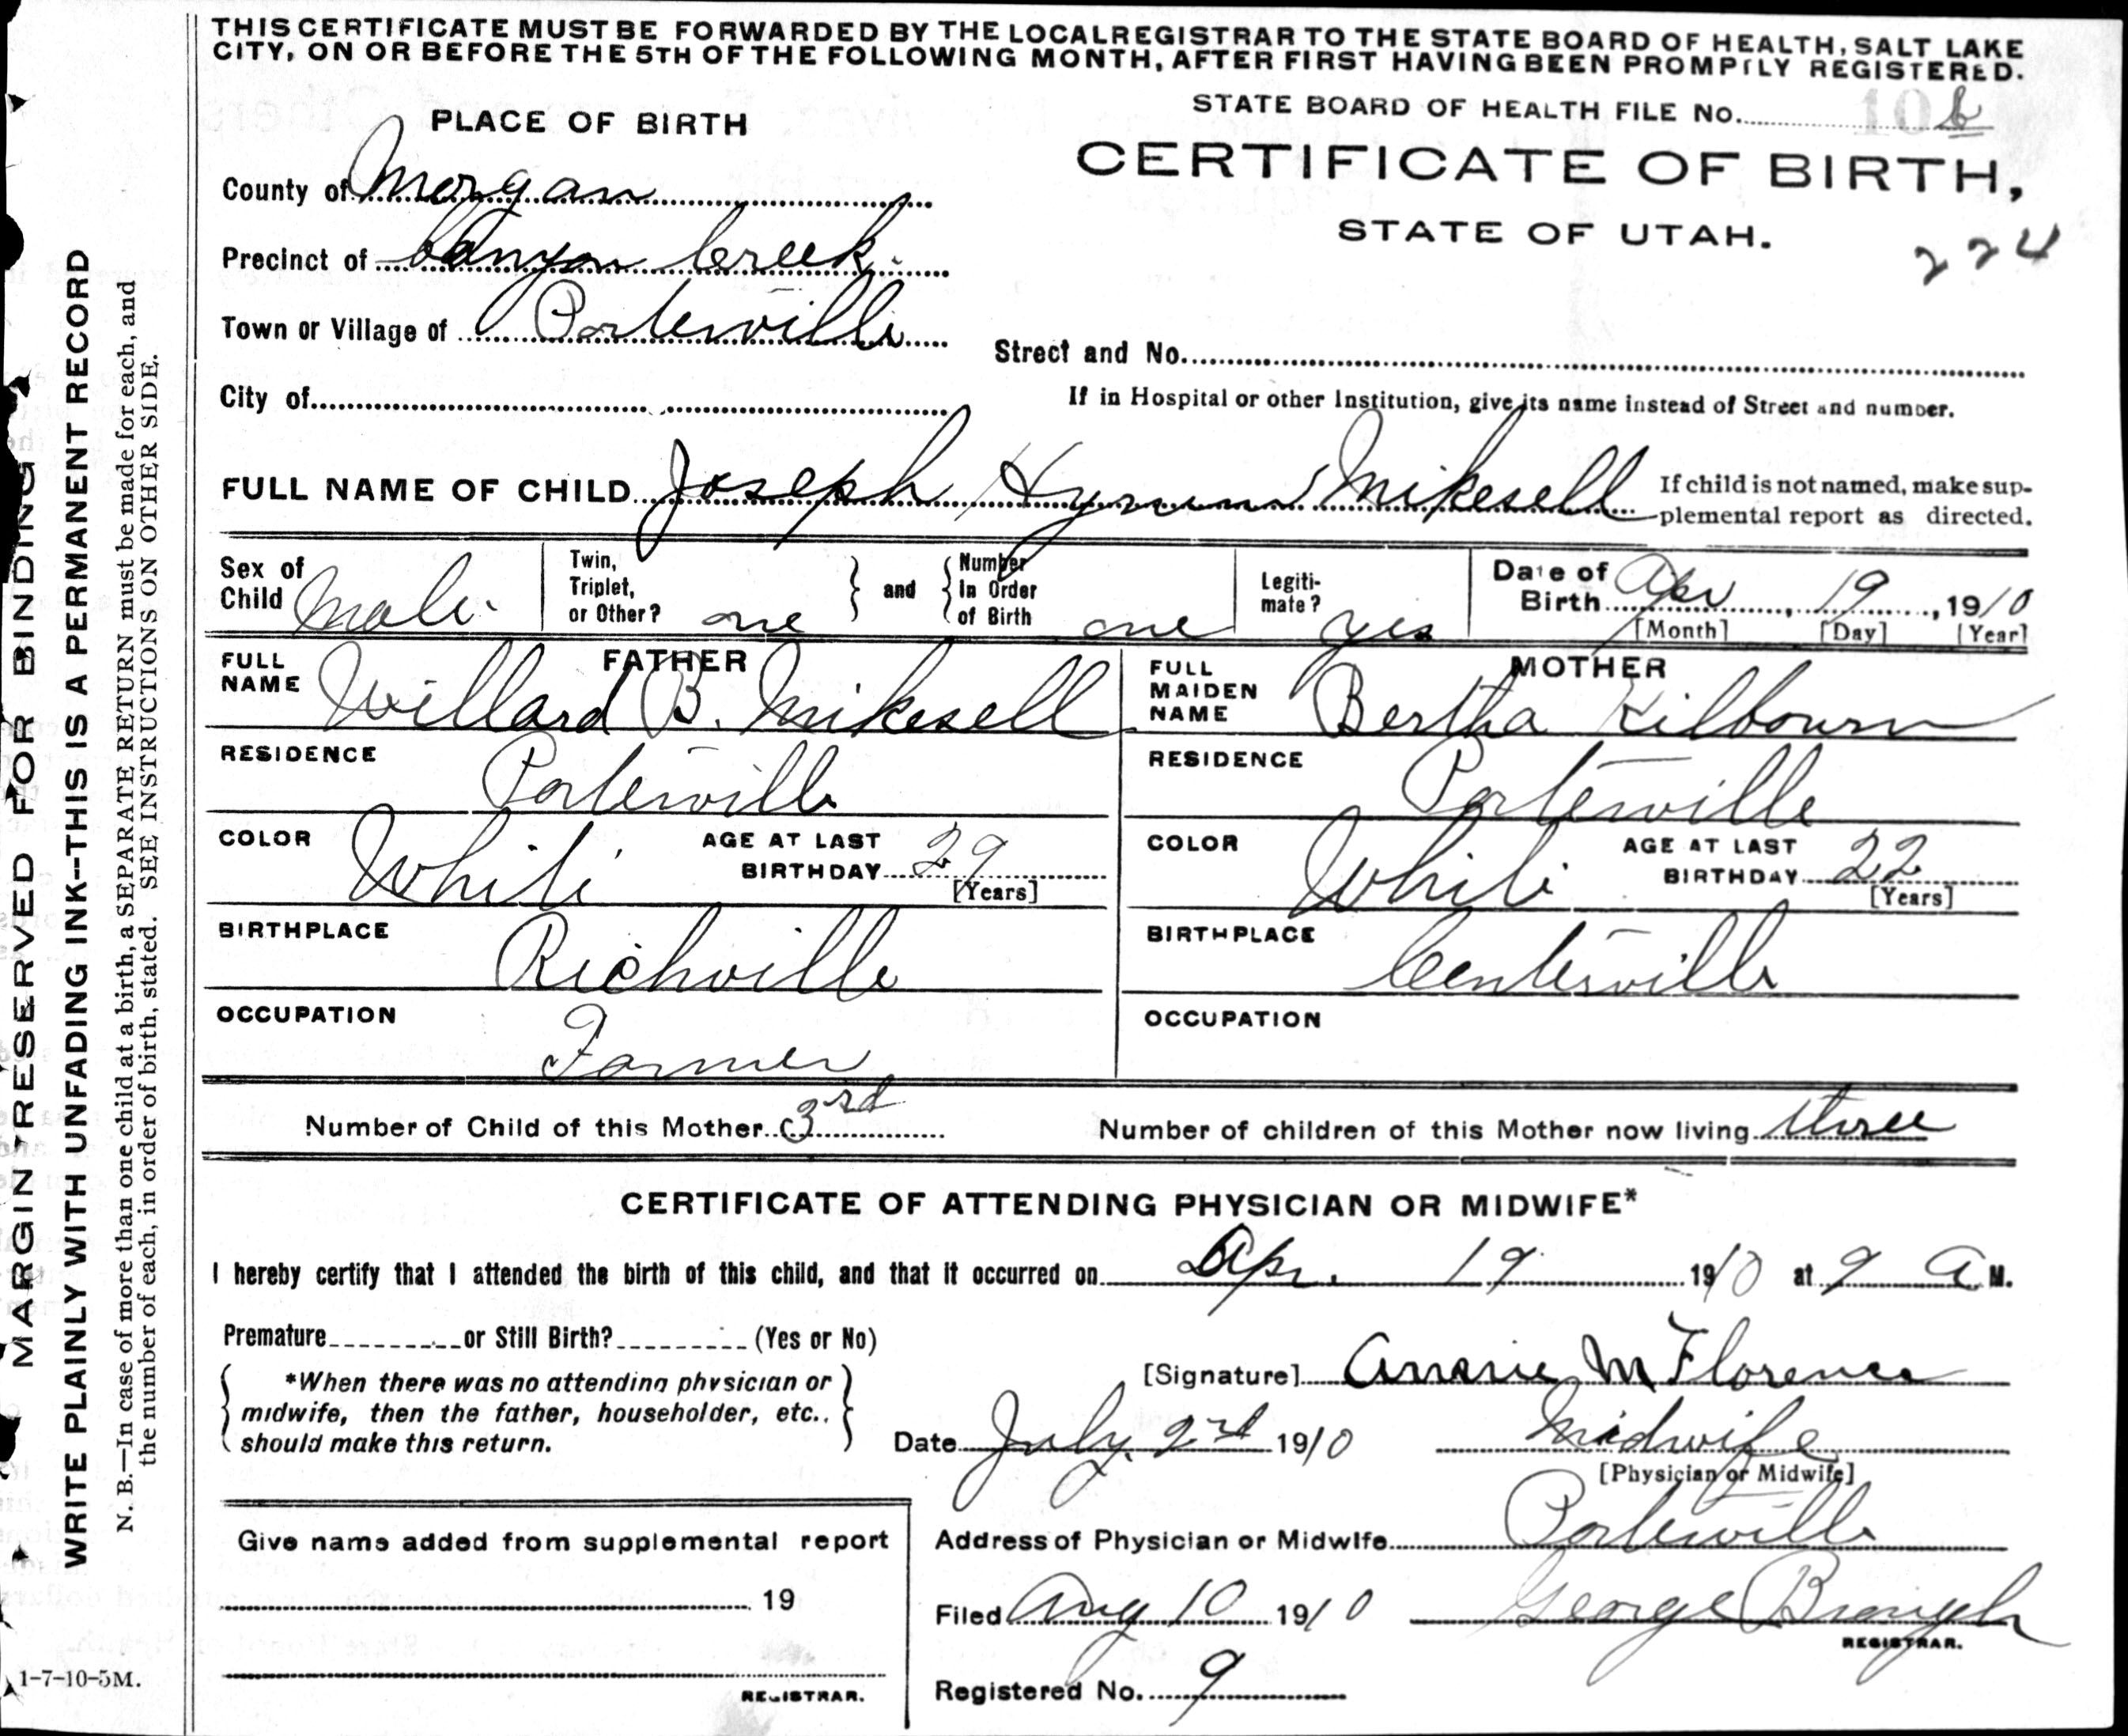 THIS CERTIFICATE MUST BE FORWARDED BY THE LOCAL REGISTRAR TO THE STATE BOARD OF HEALTH, SALT LAKE
CITY, ON OR BEFORE THE 5TH OF THE FOLLOWING MONTH, AFTER FIRST HAVING BEEN PROMPTLY REGISTERED.
STATE BOARD OF HEALTH FILE No. 106
PLACE OF BIRTH
CERTIFICATE OF BIRTH,
STATE OF UTAH.
224
County of Morgan
Precinct of Canyon Creek
Town or Village of Porterville
Street and No.
City of
If in Hospital or other Institution, give its name instead of Street and number.
FULL NAME OF CHILD Joseph Hyrum Mikesell
If child is not named, make sup-
plemental report as directed.
Sex of Child Male
Twin, Triplet, or Other? one and Number In Order of Birth one
Legiti-mate? yes
Date of Birth Apr 19, 1910
[Month] [Day] [Year]
FATHER
FULL NAME Willard B. Mikesell
RESIDENCE Porterville
COLOR White AGE AT LAST BIRTHDAY 29
[Years]
BIRTHPLACE Richville
OCCUPATION Farmer
MOTHER
FULL MAIDEN NAME Bertha Kilbourn
RESIDENCE Porterville
COLOR White AGE AT LAST BIRTHDAY 22
[Years]
BIRTHPLACE Centerville
OCCUPATION
Number of Child of this Mother 3rd
Number of children of this Mother now living three
CERTIFICATE OF ATTENDING PHYSICIAN OR MIDWIFE*
I hereby certify that I attended the birth of this child, and that it occurred on Apr. 19 1910 at 9 A M.
Premature or Still Birth? (Yes or No)
*When there was no attending physician or
midwife, then the father, householder, etc.,
should make this return.
[Signature] Annie M Florence
Date July 2nd 1910
Midwife
[Physician or Midwife]
Address of Physician or Midwife Porterville
Filed Aug 10 1910 George Brough
REGISTRAR.
Registered No. 9
Give name added from supplemental report
19
REGISTRAR.
MARGIN RESERVED FOR BINDING
WRITE PLAINLY WITH UNFADING INK--THIS IS A PERMANENT RECORD
N. B.—In case of more than one child at a birth, a SEPARATE RETURN must be made for each, and
the number of each, in order of birth, stated. SEE INSTRUCTIONS ON OTHER SIDE.
1-7-10-5M.